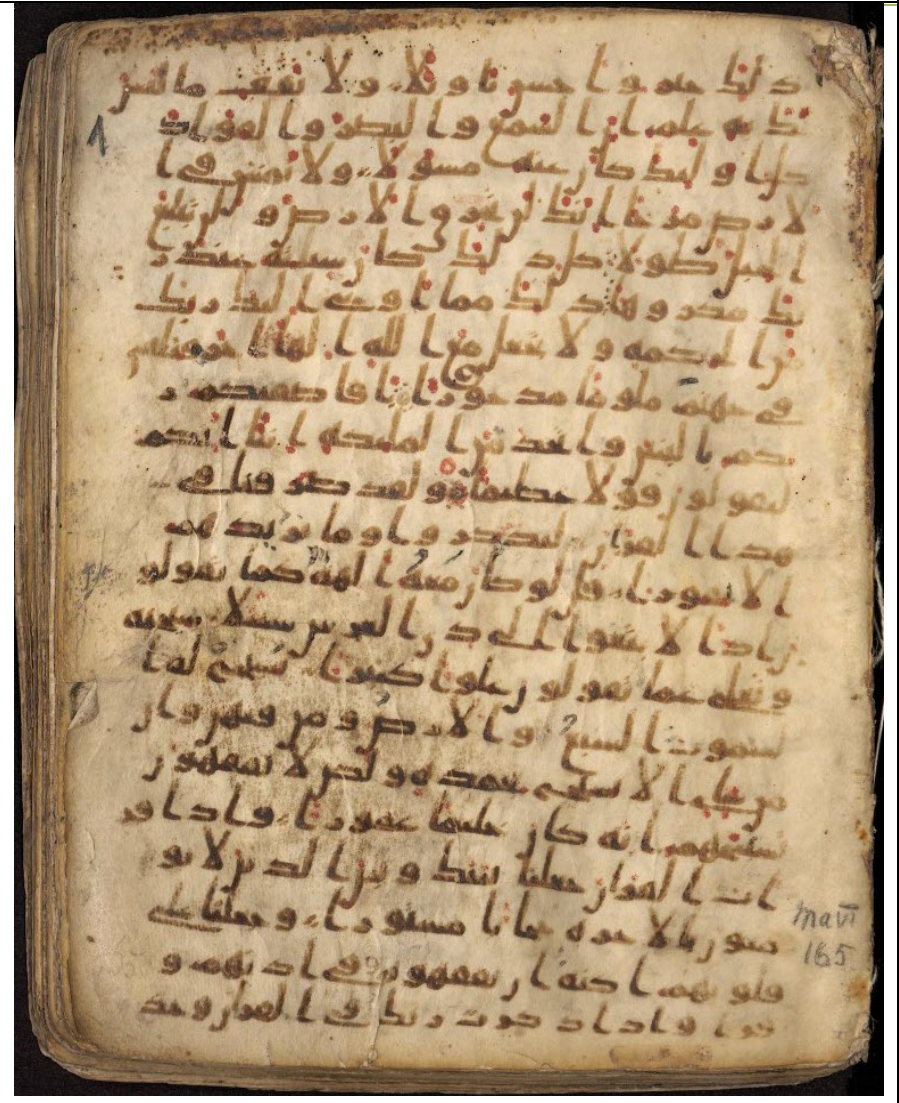 ذلك خير واحسن تاويلا ولا تقف ما ليس
لك به علم ان السمع والبصر والفواد
كل اولئك كان عنه مسولا ولا تمش في ا
لارض مرحا انك لن تخرق الارض ولن تبلغ
الجبل طولا كل ذلك كان سيئه عند ر
بك مكروها ذلك مما اوحى اليك ربك
من الحكمه ولا تجعل مع الله الها اخر فتلقى
في جهنم ملوما مدحورا افاصفيكم ر
بكم بالبنين واتخذ من الملئكه انثا انكم
لتقولون قولا عظيما ولقد صرفنا في
هذا القران ليذكروا وما يزيدهم
الا نفورا قل لو كان معه الهه كما تقولو
ن اذا لابتغوا الى ذي العرش سبيلا سبحنه
وتعلى عما يقولون علوا كبيرا تسبح له ا
لسموت السبع والارض ومن فيهن وان
من شي الا يسبح بحمده ولكن لا تفقهون
تسبيحهم انه كان حليما غفورا واذا قر
ات القران جعلنا بينك وبين الذين لا يو
منون بالاخره حجابا مستورا وجعلنا على
قلوبهم اكنه ان يفقهوه وفي اذنهم و
قرا واذا ذكرت ربك في القران وحد
1
Mavi
165